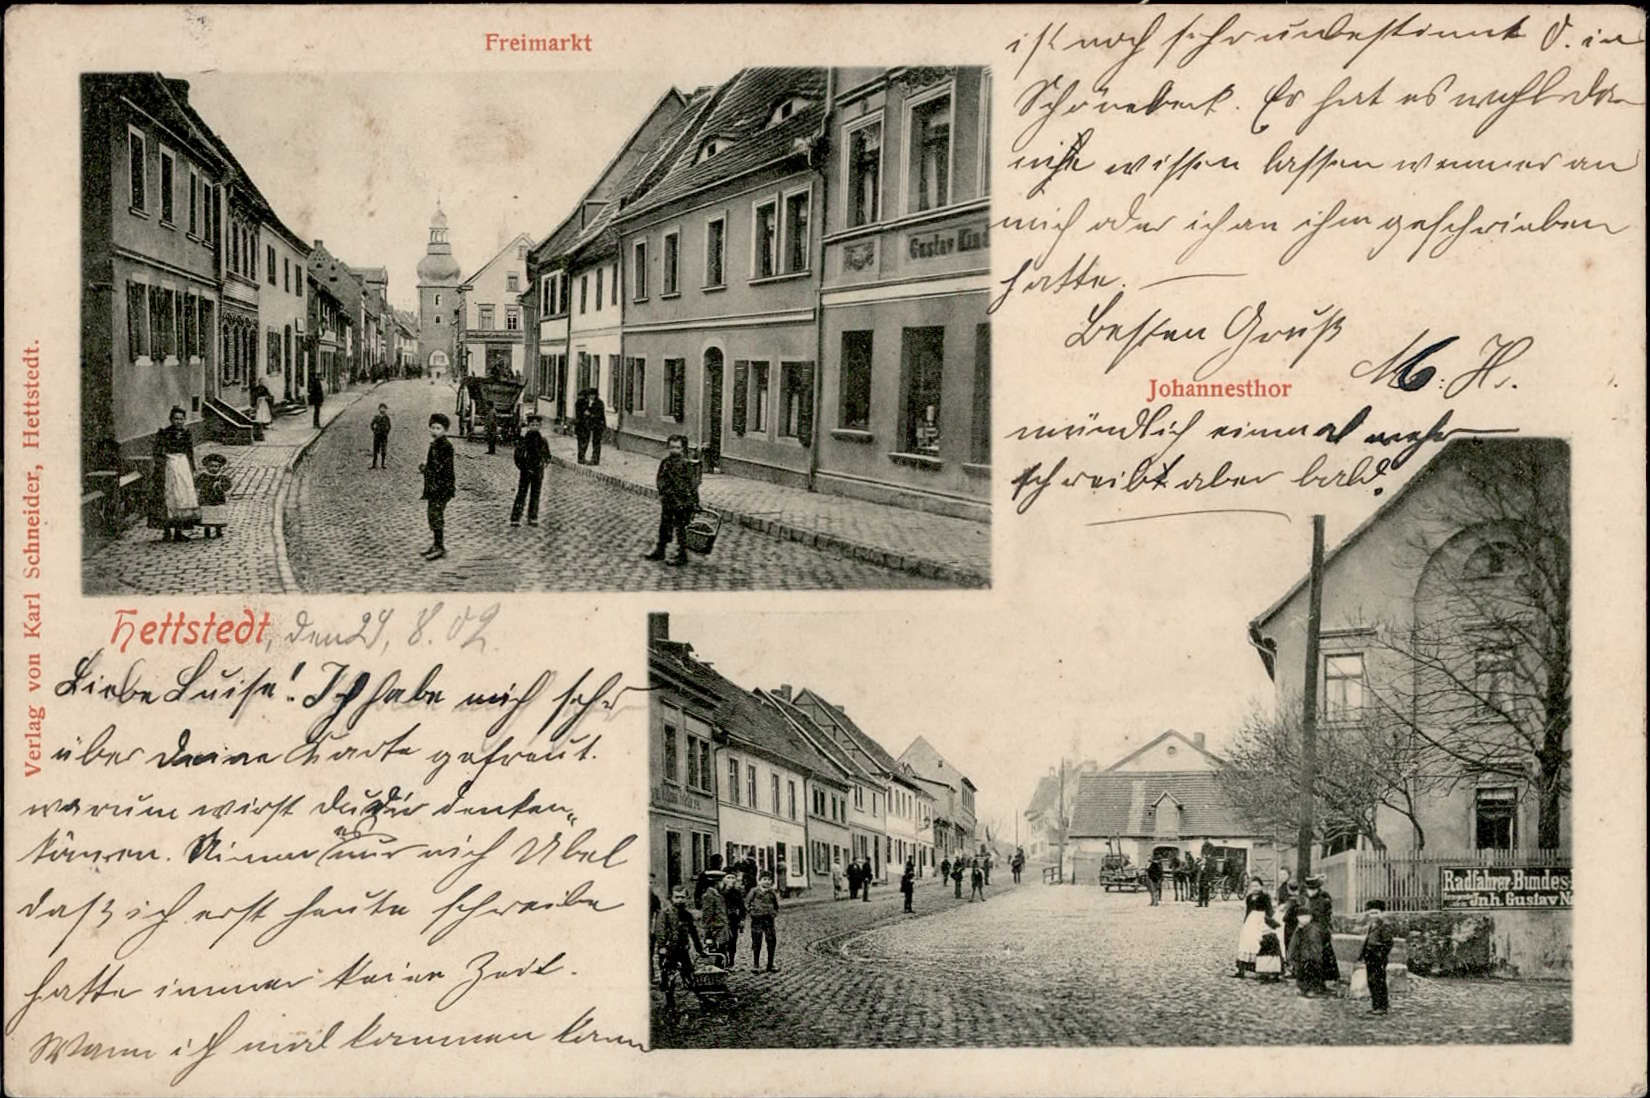 Freimarkt
Gustav
Verlag von Karl Schneider, Hettstedt.
Hettstedt, den 24. 8. 02
Liebe Luise! Ich habe mich sehr
über Deine Karte gefreut.
warum wirst Du Dir denken
können. Nimm es nur nich Übel
daß ich erst heute schreibe
hatte immer keine Zeit.
Wann ich mal kommen kann
ist noch sehr unbestimmt d. in
Schönebeck. Er hat es wohl
nicht wissen lassen wenn er an
mich oder ich an ihm geschrieben
hatte.
Besten Gruß
M. H.
Johannesthor
mündlich einmal mehr
schreibt aber bald.
Radfahrer-Bundes
Jnh. Gustav